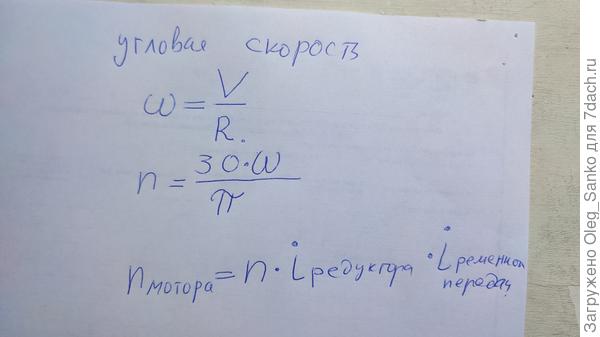 угловая скорость
ω = V / R.
n = 30·ω / π
n мотора = n · i редуктора · i ременной передач
Загружено Oleg_Sanko для 7dach.ru